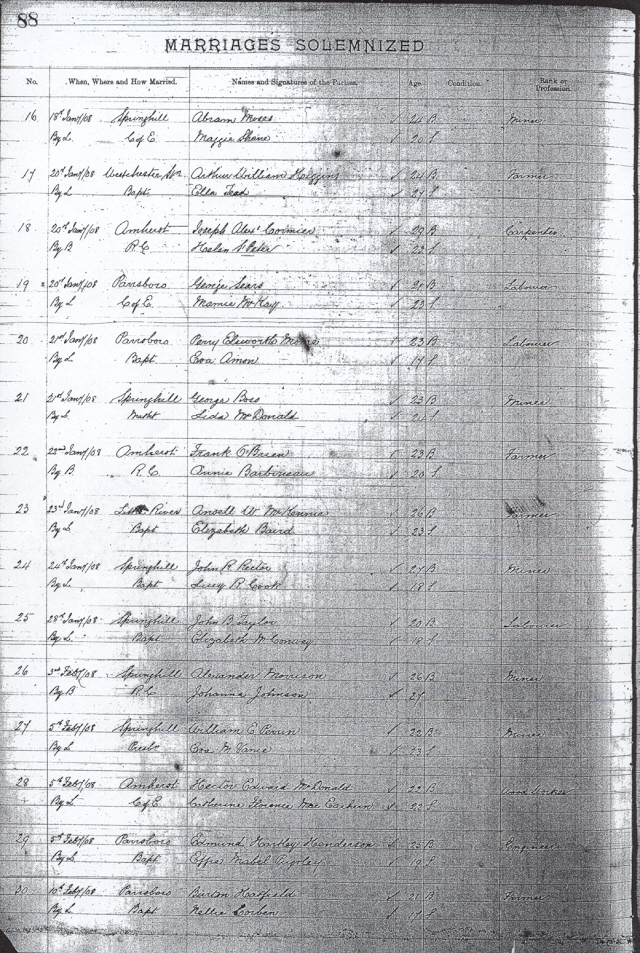 88
MARRIAGES SOLEMNIZED
No. When, Where and How Married. Names and Signatures of the Parties. Age Condition. Rank or Profession.
16 18th Jany/08 Springhill Abram Moses ✓ 24 B Miner
By L. C of E. Maggie Shane ✓ S
17 20th Jany/08 Westchester Arthur William Higgins ✓ 24 B Farmer
By L Bapt. Ella Tead ✓ 27 S
18 20th Jany/08 Amherst Joseph Alexr Cormier ✓ 29 B Carpenter
By B R.C. Helen ✓ 22 S
19 20th Jany/08 Parrsboro George Sears ✓ B Labourer
By L C of E. Mamie McKay ✓ 23 S
20 21st Jany/08 Parrsboro Perry Elsworth ✓ 23 B Labourer
By L Bapt. Eva Amon ✓ 17 S
21 21st Jany/08 Springhill George Boss ✓ 23 B Miner
By L Metht Lida McDonald ✓ 21 S
22 22nd Jany/08 Amherst Frank O'Brien ✓ 23 B Farmer
By B. R.C. Annie Barbineau ✓ 20 S
23 23rd Jany/08 River Ansell W McKennie ✓ 26 B Farmer
By L Bapt Elizabeth Baird ✓ 23 S
24 24th Jany/08 Springhill John R Rector ✓ 27 B Miner
By L Bapt Lucy R. Cook ✓ 18 S
25 28th Jany/08 Springhill John B Taylor ✓ 20 B Labourer
By L. Bapt Elizabeth McConvey ✓ 18 S
26 3rd Feby/08 Springhill Alexander Morrison ✓ 26 B Miner
By B R.C. Johanna Johnson ✓ 27
27 5th Feby/08 Springhill William E Perrin ✓ 22 B
By L Presbn Eva M Vance ✓ 23 S
28 5th Feby/08 Amherst Hector Edward McDonald ✓ 22 B Wood Worker
By L. C of E. Catherine Florence Mac Eachern ✓ 22 S
29 5th Feby/08 Parrsboro Edmund Hartley Henderson ✓ 25 B Engineer
By L Bapt Effie Mabel ✓ 19 S
30 10th Feby/08 Parrsboro Burton Hatfield ✓ 21 B Farmer
By L Bapt Nellie Corben ✓ 17 S